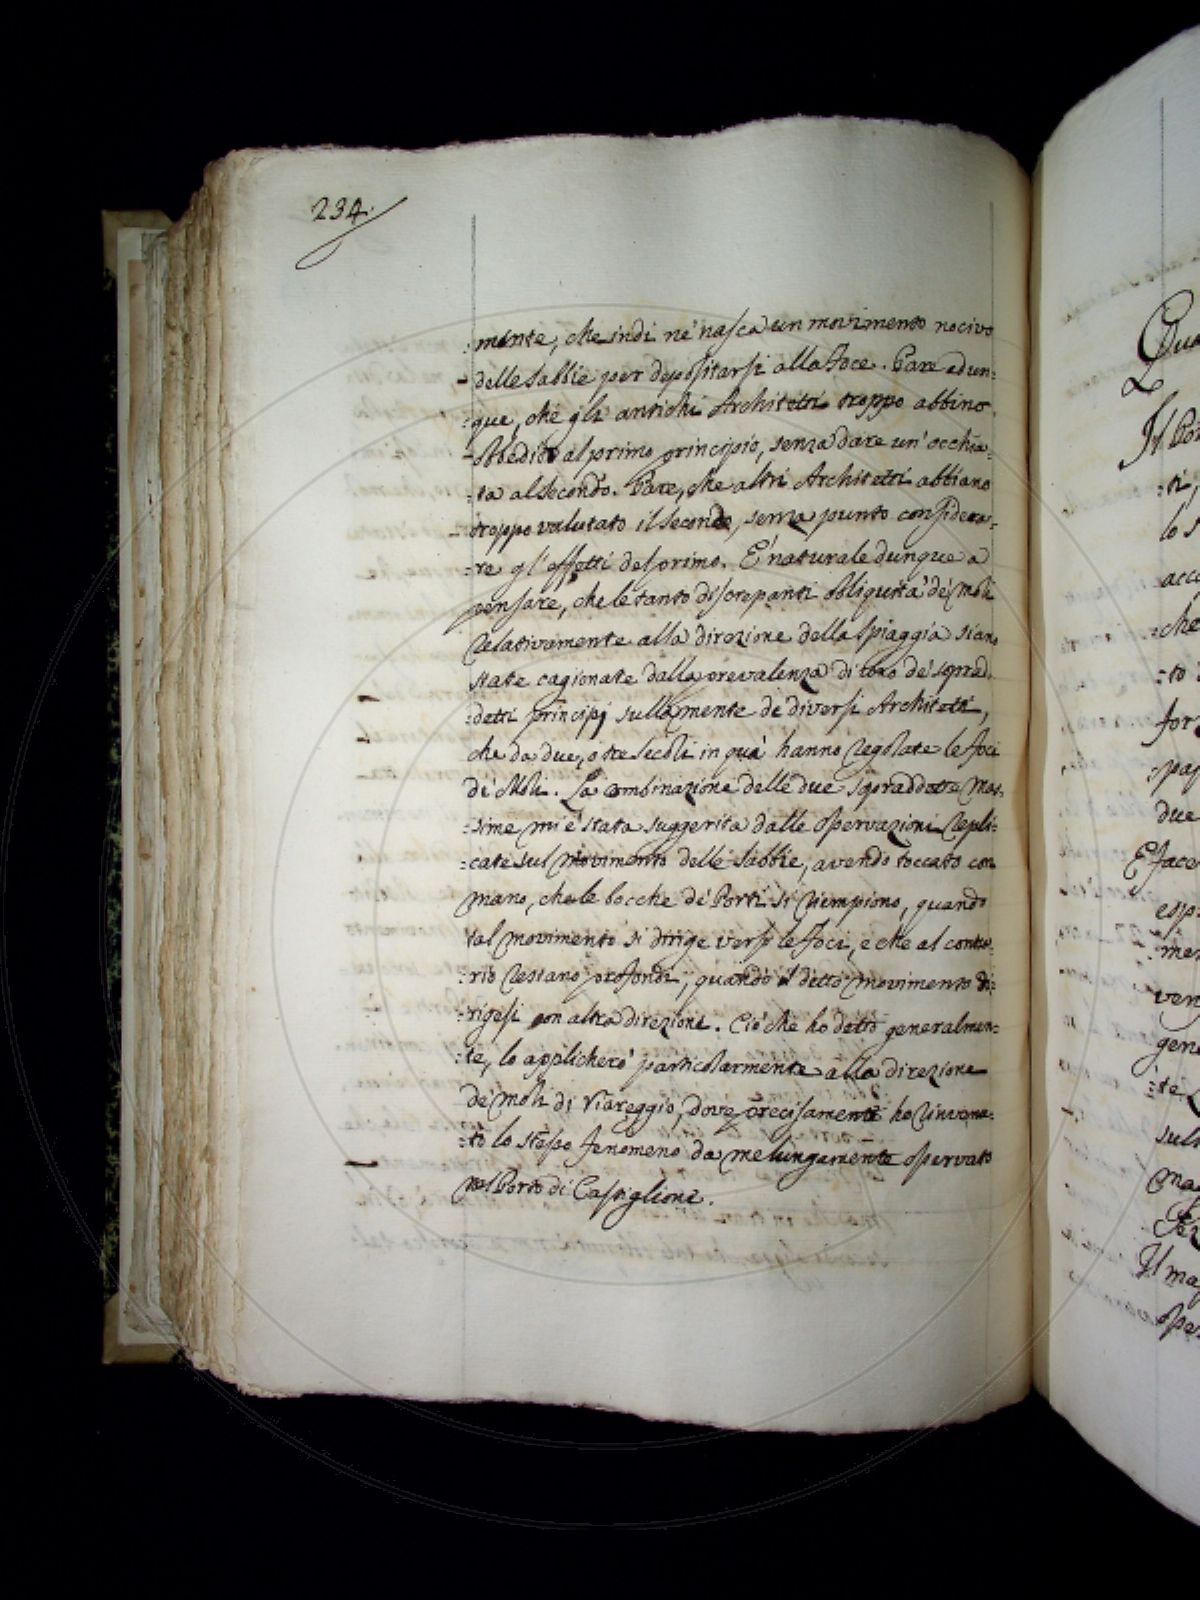 234.
:mente, che indi ne nasca un movimento nocivo
-delle Sabbie per depositarsi alla Foce. Pare adun:
:que, che gli antichi Architetti troppo abbino
-obbedito al primo principio, senza dare un' occhia:
:ta al secondo. Pare, che altri Architetti abbiano
-troppo valutato il secondo, senza punto considera:
:re gl' effetti del primo. E' naturale dunque a
pensare, che le tanto discrepanti obliquità de' Moli
relativamente alla direzione della Spiaggia siano
state cagionate dalla prevalenza di uno de' soprad:
:detti principj sulla mente de' diversi Architetti,
che da due, o tre Secoli in quà hanno regolate le Foci
de' Moli. La combinazione delle due sopraddette Mas:
:sime mi è stata suggerita dalle osservazioni repli:
:cate sul movimento delle Sabbie, avendo toccato con
mano, che le bocche de' Porti si riempiono, quando
tal movimento si dirige verso le Foci, e che al contra:
:rio restano profondi, quando il detto movimento di:
:rigesi con altra direzione. Ciò che ho detto generalmen:
:te, lo applicherò particolarmente alla direzione
de' Moli di Viareggio, dove precisamente ho rinvenu:
:to lo stesso fenomeno da me lungamente osservato
nel Porto di Castiglione.
Il
ti,
acc
che
:to
due
gene
Il ma